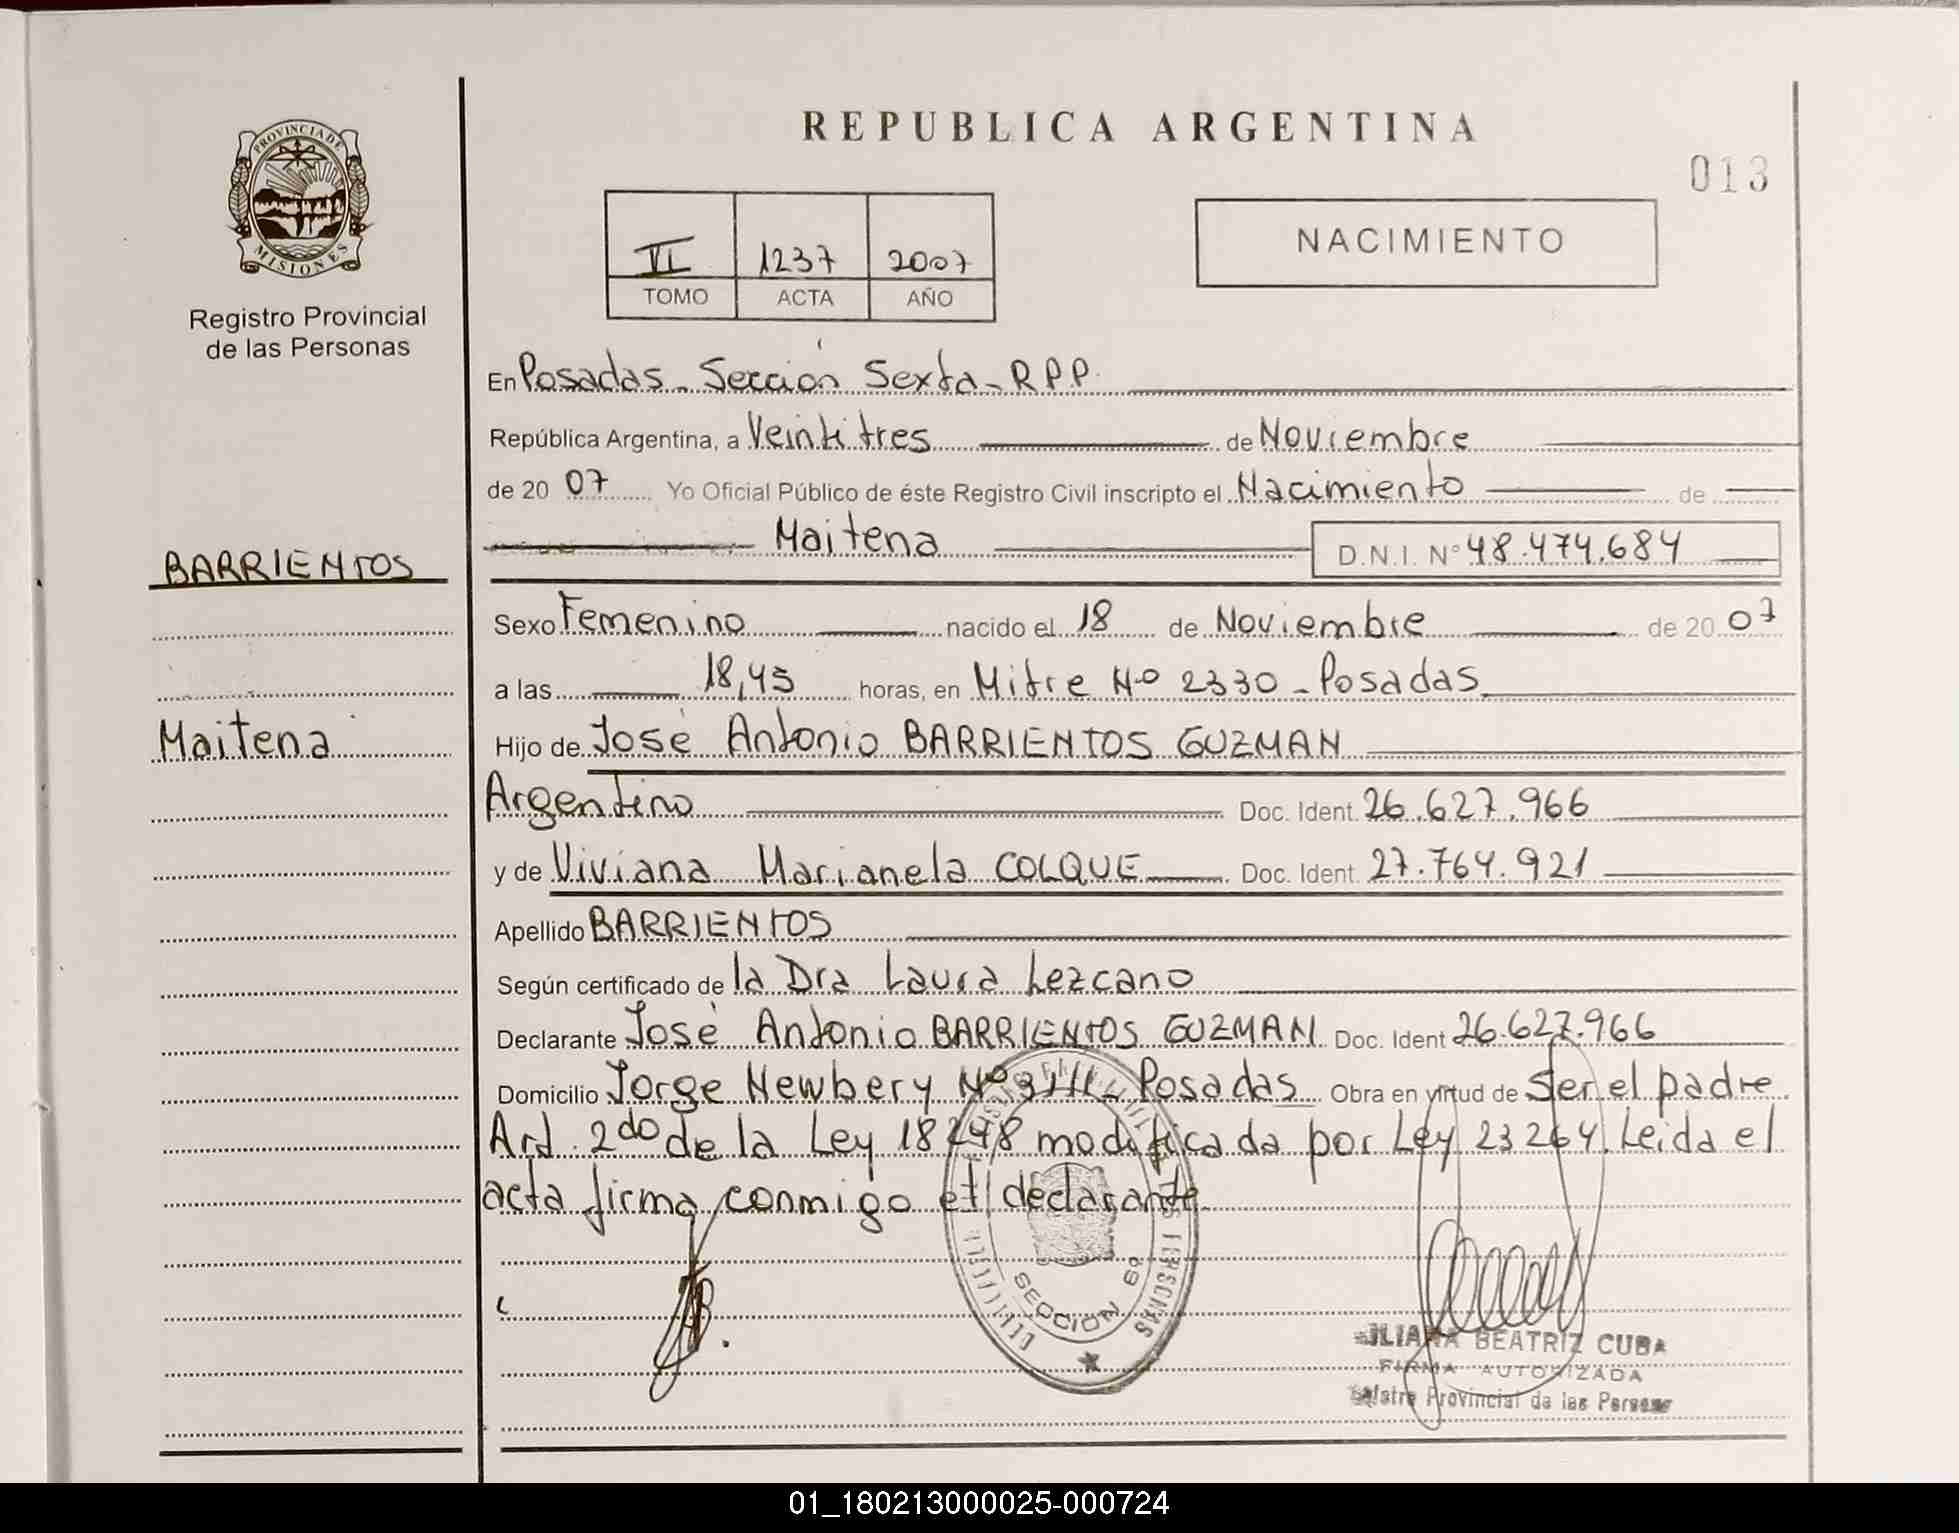 REPUBLICA ARGENTINA
013
PROVINCIA DE
MISIONES
Registro Provincial
de las Personas
VI 1237 2007
TOMO ACTA AÑO
NACIMIENTO
En Posadas - Sección Sexta - R P P.
República Argentina, a Veintitres de Noviembre
de 20 07 Yo Oficial Público de éste Registro Civil inscripto el Nacimiento de
Maitena D.N.I. N° 48.474.684
BARRIENTOS
Sexo Femenino nacido el 18 de Noviembre de 20 07
a las 18,45 horas, en Mitre Nº 2330 - Posadas
Maitena
Hijo de José Antonio BARRIENTOS GUZMAN
Argentino Doc. Ident. 26.627.966
y de Viviana Marianela COLQUE Doc. Ident. 27.764.921
Apellido BARRIENTOS
Según certificado de la Dra Laura Lezcano
Declarante José Antonio BARRIENTOS GUZMAN Doc. Ident 26.627.966
Domicilio Jorge Newbery Nº Posadas Obra en virtud de Ser el padre
Art. 2do de la Ley 18248 modificada por Ley 23264. Leida el
acta firma conmigo el declarante.
PERSONAS
SECCION 6ª
BEATRIZ CUBA
FIRMA AUTORIZADA
Provincial de las
01_180213000025-000724